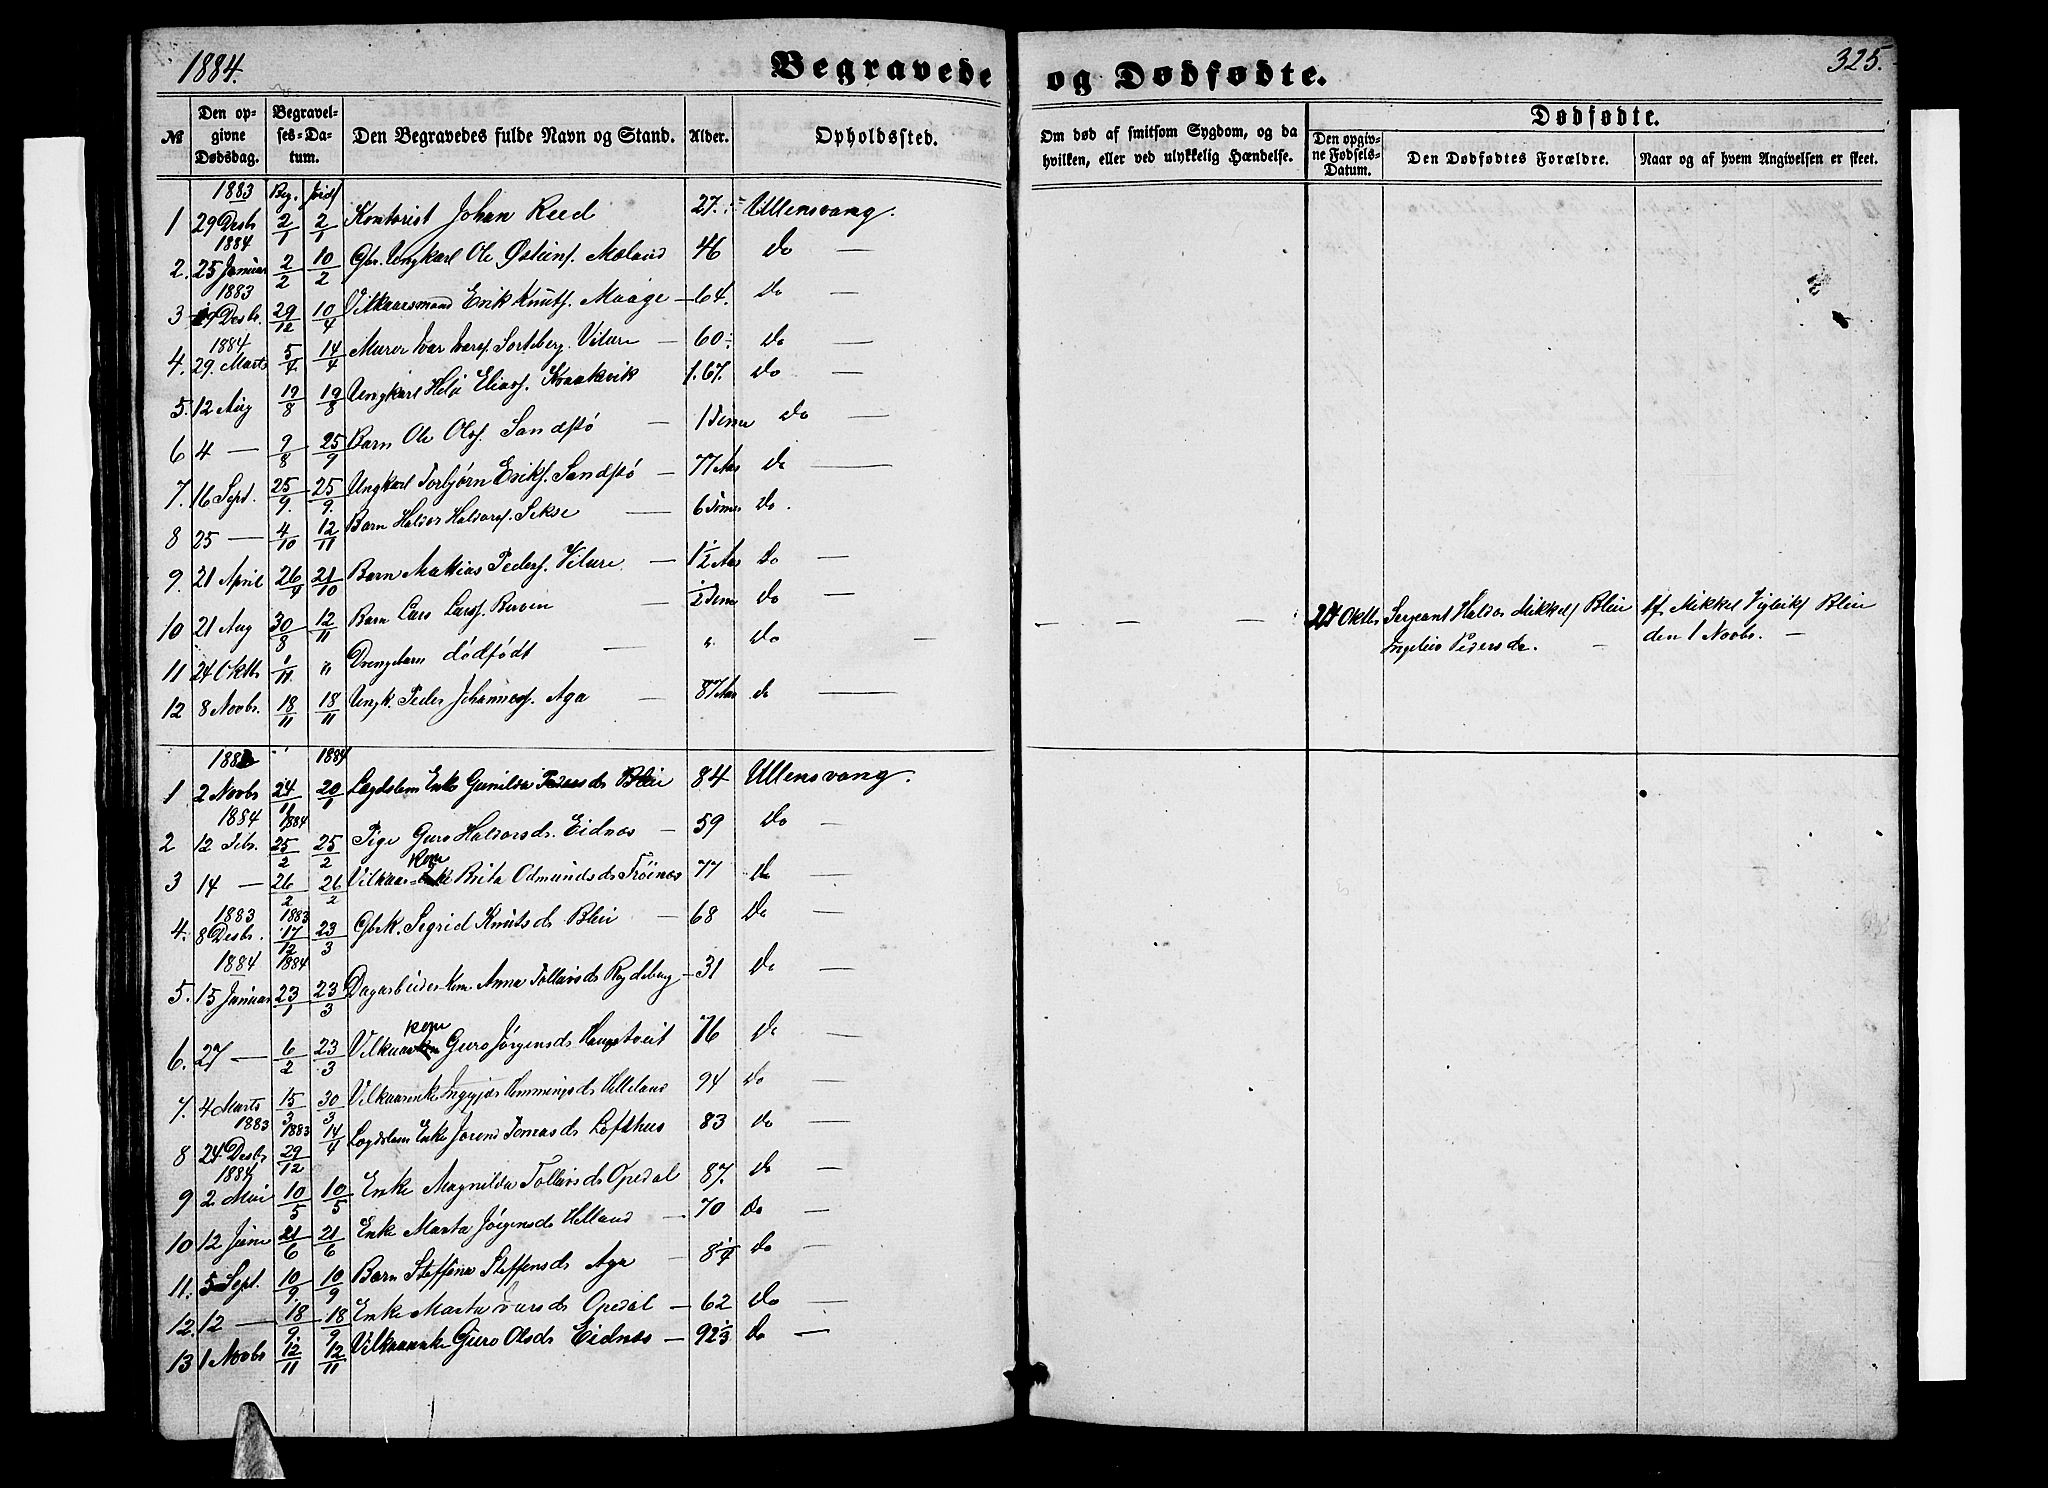 1884.
Begravede og Dødfødte.
325.
№
Den opgivne Dødsdag.
Begravelses-Datum.
Den Begravedes fulde Navn og Stand.
Alder.
Opholdssted.
Om død af smitsom Sygdom, og da hvilken, eller ved ulykkelig Hændelse.
Dødfødte.
Den opgivne Fødsels-Datum.
Den Dødfødtes Forældre.
Naar og af hvem Angivelsen er skeet.
1883 Beg. Jordf
1 29 Desbr 2/1 2/1 Kontorist Johan Reed 27. Ullensvang.
1884
2. 25 Januar 2/2 10/2 Gbr. Ungkarl Ole Østeins. Mæland 46 Do —
1883
3 Desbr. 29/12 10/4 Vilkaarsmand Erik Knuts. Maage — 64. Do —
1884
4. 29. Marts 5/4 14/4 Murer Ivar Ivars. Sorteberg. Vilure — 60 Do —
5. 12 Aug 19/8 19/8 Ungkarl Elias. Kraakevik 67. Do —
6 4 — 9/8 25/9 Barn Ole Ols. Sandstø — 1 Time Do —
7. 16 Sept. 25/9. 25/9. Ungkarl Torbjørn Eriks. Sandstø — 77 Aar Do —
8 25 — 4/10 12/11 Barn Haldor Haldors. Sekse — 6 Timer Do.
9. 21 April 26/4 21/10 Barn Mathias Peders. Vilure. — 1 1/2 Aar Do —
10 21 Aug 30/8 12/11 Barn Lars Lars. Berven — 1/2 Time Do —
11 24 Oktb 1/11 " Drengebarn dødfødt — " Do —
— — — 24 Oktbr Sergeant Haldor Mikkels Bleie Af Mikkel Vigleiks Bleie
Ingeleiv Pedersdr. — den 1 Novbr. —
12 8 Novbr. 18/11 18/11 Ungk. Peder Johanness. Aga — 87 Aar do —
1884
1 2 Novbr 24/11 20/1 Lægdslem Enke Gunilda Pedersdr Bleie 84 Ullensvang.
1884 1884
2 12 Febr. 25/2 25/2 Pige Guro Haldorsdr. Eidnes — 59 Do —
Kone
3 14 — 26/2 26/2 Vilkaar Brita Odmundsdr Trøinæs 77 Do —
1883 1883
4. 8 Desbr. 17/12 23/3 Gbrk. Segrid Knutsdr Bleie — 68 Do —
1884 1884
5. 15 Januar 23/1 23/3 Dagarbeider-Kone. Anna Tollavsdr Rydeberg — 31 Do —
Kone
6. 27 — 6/2 23/3 Vilkaar Guro Jørgensdr Haugstveit 76 Do —
7. 4 Marts 15/3 30/3 Vilkaarenke Hemmingsdr Helleland 94 Do —
1883 1883
8 24 Desbr 29/12 14/4 Lægdslem Enke Jorend Tomasdr Lofthus 83 Do —
1884
9 2 Mai 10/5 10/5 Enke Magnilda Tollavsdr Opedal 87. Do —
10 12 Juni 21/6 21/6 Enke Marta Jørgensdr Helland — 70 Do —
11. 5 Sept. 10/9 10/9 Barn Steffina Steffensdr Aga — 8 1/4 Do —
12. 12 — 18/9. 18/9 Enke Marta Ivarsdr Opedal — 62 Do —
13 1 Novbr 12/11 12/11 Vilkaarenke Guro Olsdr Eidnes — 92 1/3 Do —